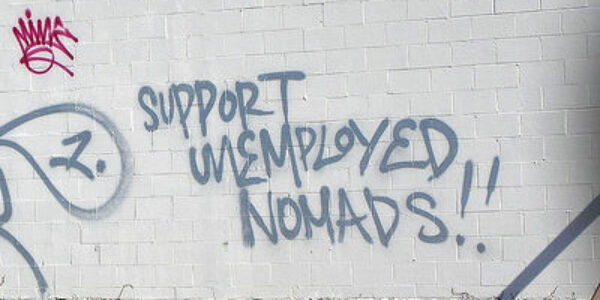 SUPPORT
UNEMPLOYED
NOMADS!!